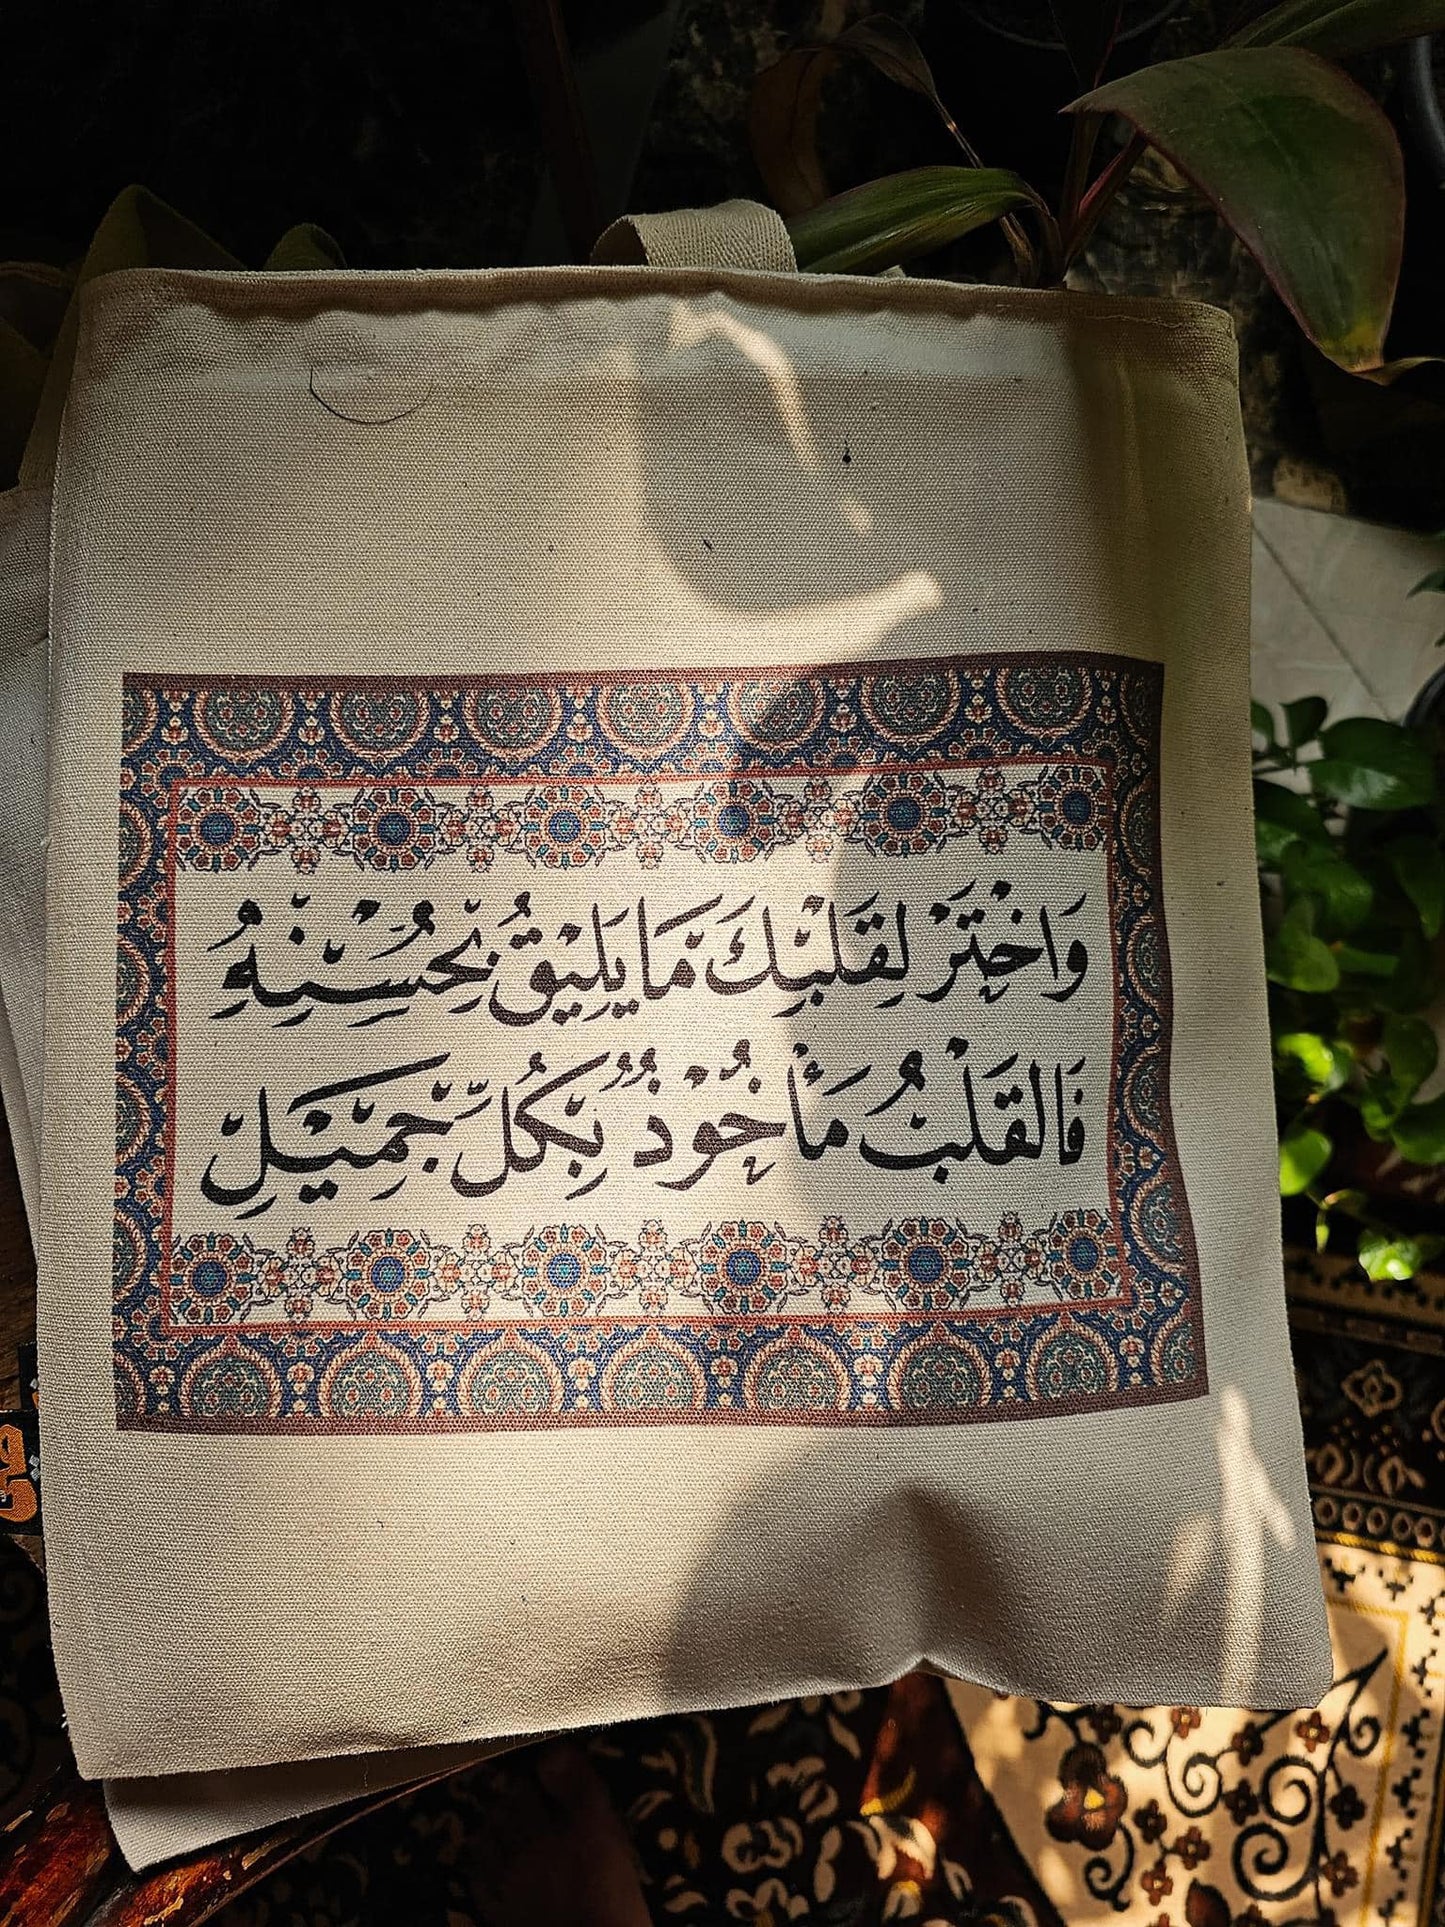 وَاخْتَرْ لِقَلْبِكَ مَا يَلِيْقُ بِحُسِنْهِ
فَالقَلْبُ مَأْخُوْذٌ بِكُلِّ جَمِيْلِ